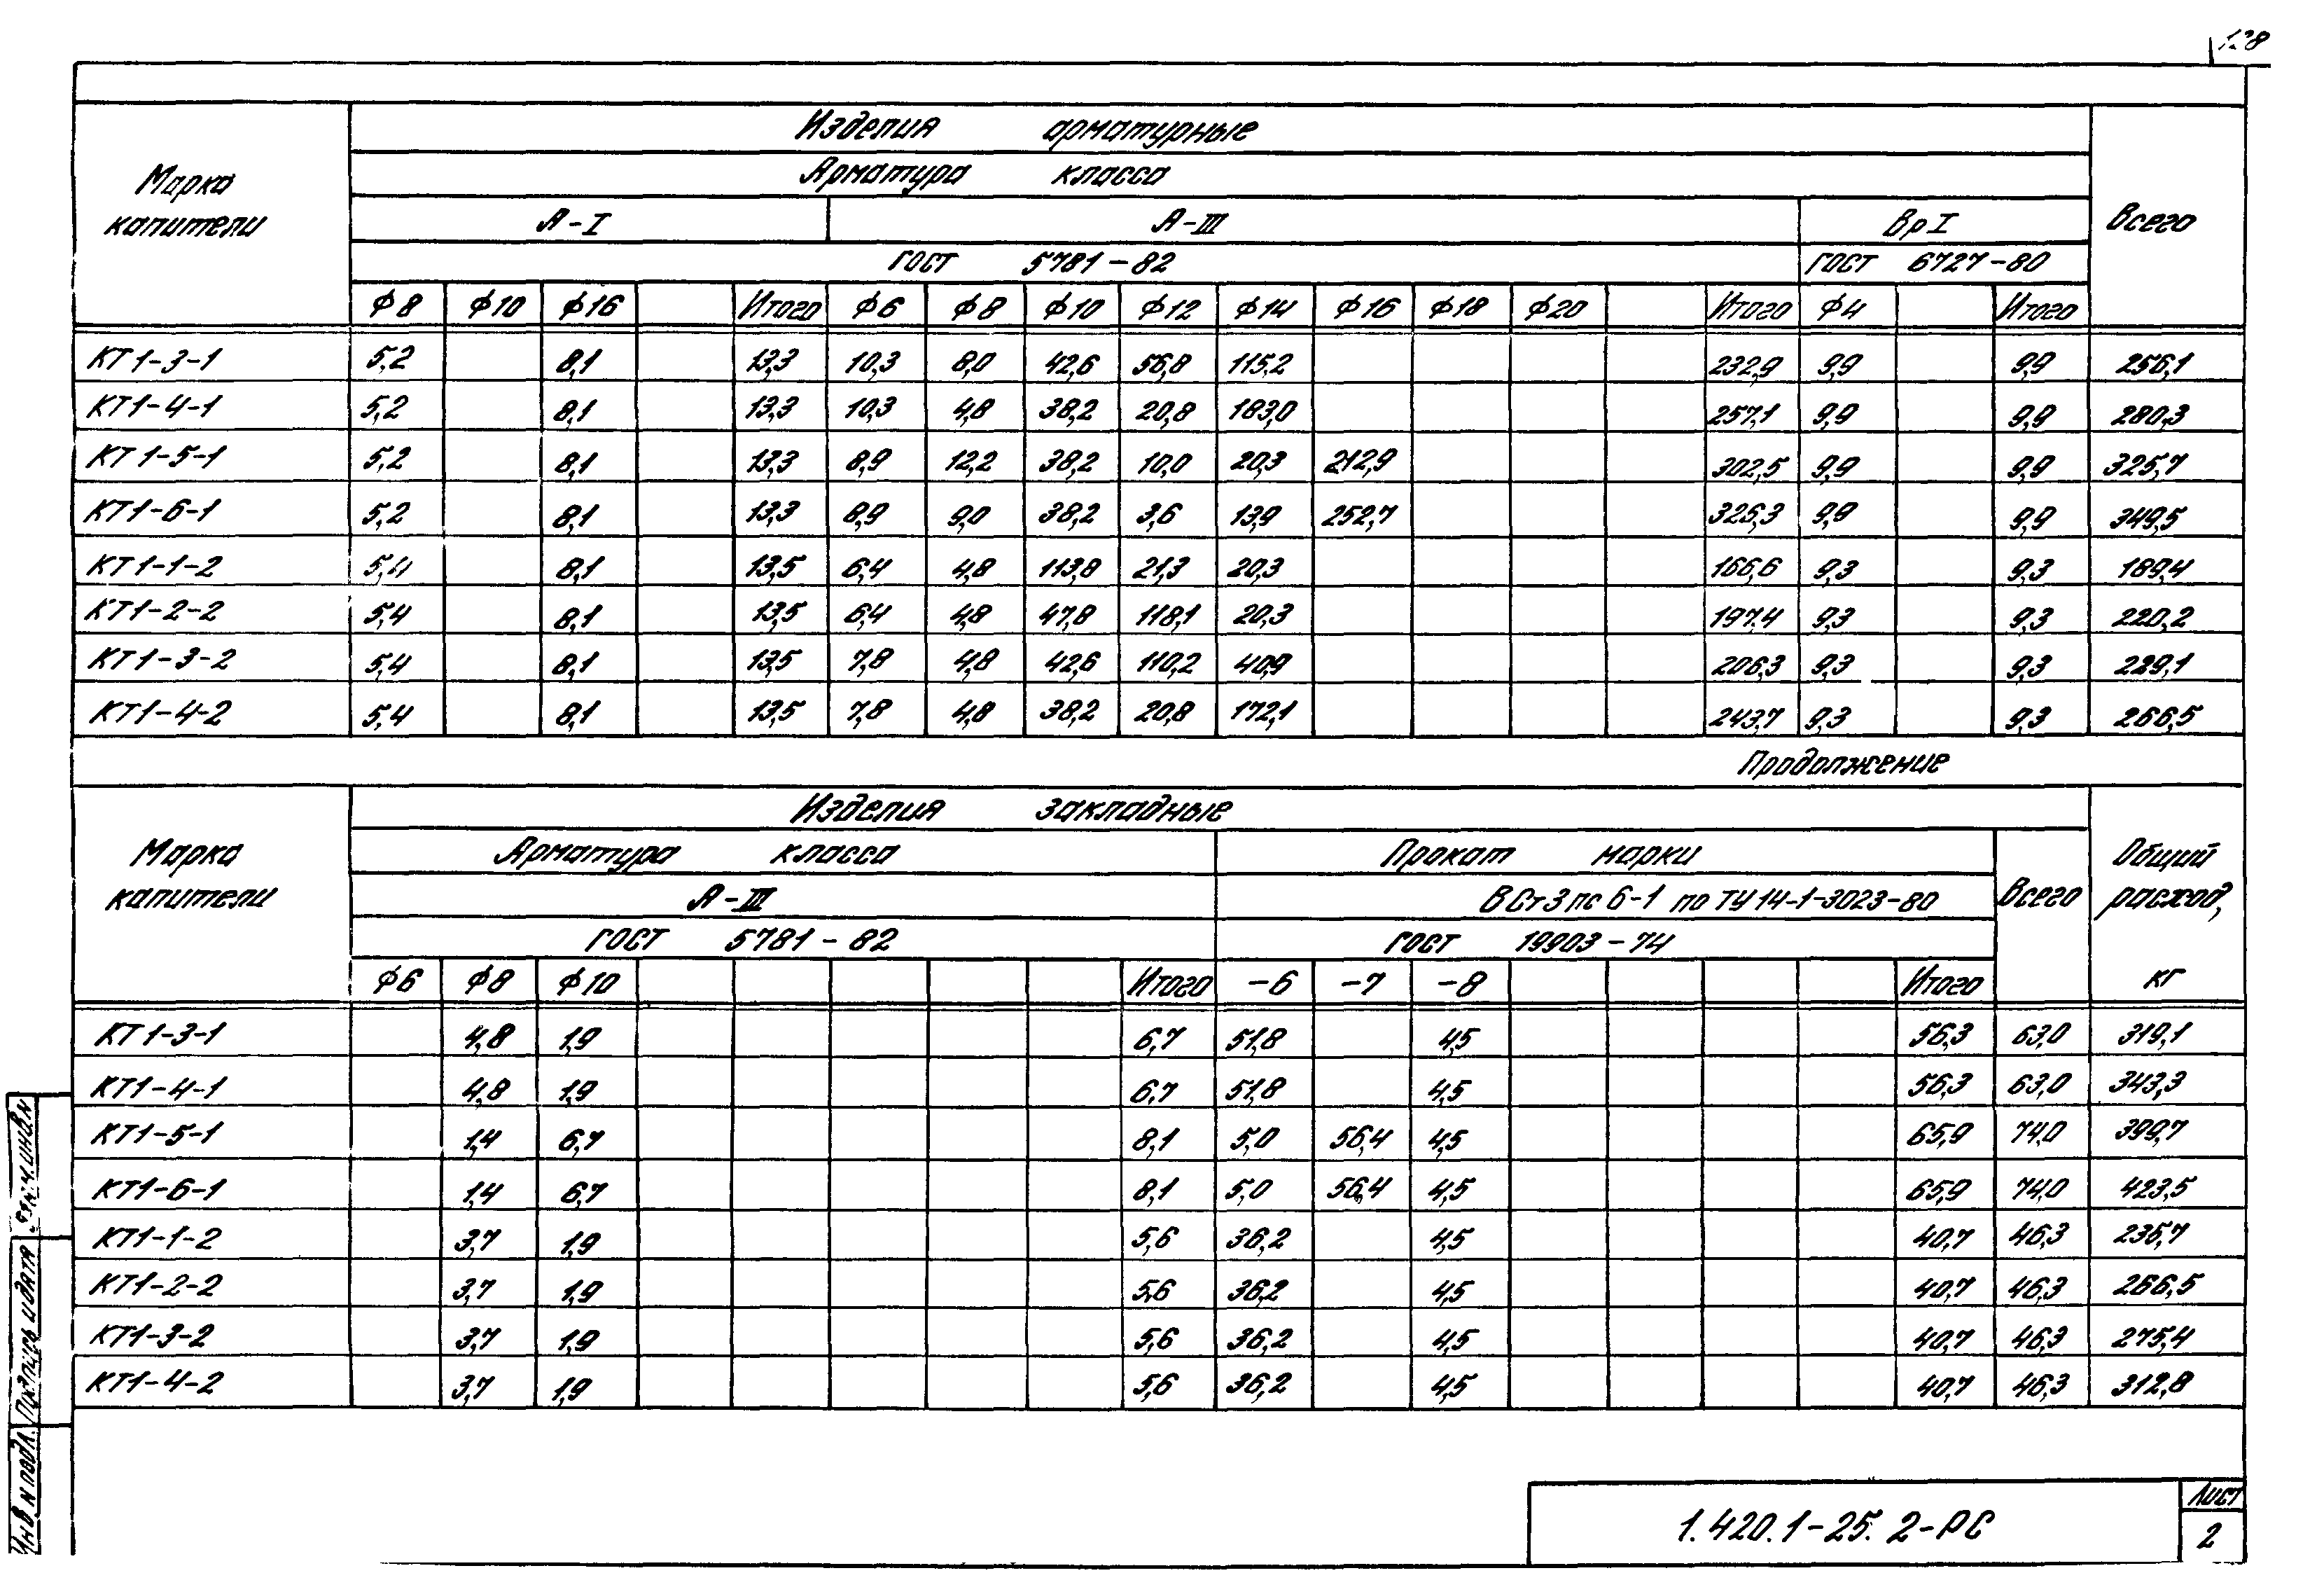 128
Изделия арматурные
Арматура класса
Марка капители
А-I А-III Вр I Всего
ГОСТ 5781-82 ГОСТ 6727-80
ф8 ф10 ф16 Итого ф6 ф8 ф10 ф12 ф14 ф16 ф18 ф20 Итого ф4 Итого
КТ1-3-1 5,2 8,1 13,3 10,3 8,0 42,6 56,8 115,2 232,9 9,9 9,9 256,1
КТ1-4-1 5,2 8,1 13,3 10,3 4,8 38,2 20,8 183,0 257,1 9,9 9,9 280,3
КТ1-5-1 5,2 8,1 13,3 8,9 12,2 38,2 10,0 20,3 212,9 302,5 9,9 9,9 325,7
КТ1-6-1 5,2 8,1 13,3 8,9 9,0 38,2 3,6 13,9 252,7 326,3 9,9 9,9 349,5
КТ1-1-2 5,4 8,1 13,5 6,4 4,8 113,8 21,3 20,3 166,6 9,3 9,3 189,4
КТ1-2-2 5,4 8,1 13,5 6,4 4,8 47,8 118,1 20,3 197,4 9,3 9,3 220,2
КТ1-3-2 5,4 8,1 13,5 7,8 4,8 42,6 110,2 40,9 206,3 9,3 9,3 229,1
КТ1-4-2 5,4 8,1 13,5 7,8 4,8 38,2 20,8 172,1 243,7 9,3 9,3 266,5
Продолжение
Изделия закладные
Марка капители
Арматура класса Прокат марки Общий
А-III ВСт3пс6-1 по ТУ14-1-3023-80 Всего расход,
ГОСТ 5781-82 ГОСТ 19903-74
ф6 ф8 ф10 Итого -6 -7 -8 Итого кг
КТ1-3-1 4,8 1,9 6,7 51,8 4,5 56,3 63,0 319,1
КТ1-4-1 4,8 1,9 6,7 51,8 4,5 56,3 63,0 343,3
КТ1-5-1 1,4 6,7 8,1 5,0 56,4 4,5 65,9 74,0 399,7
КТ1-6-1 1,4 6,7 8,1 5,0 56,4 4,5 65,9 74,0 423,5
КТ1-1-2 3,7 1,9 5,6 36,2 4,5 40,7 46,3 235,7
КТ1-2-2 3,7 1,9 5,6 36,2 4,5 40,7 46,3 266,5
КТ1-3-2 3,7 1,9 5,6 36,2 4,5 40,7 46,3 275,4
КТ1-4-2 3,7 1,9 5,6 36,2 4,5 40,7 46,3 312,8
Инв N подл. Подпись и дата инв. N
1.420.1-25. 2-РС
Лист
2